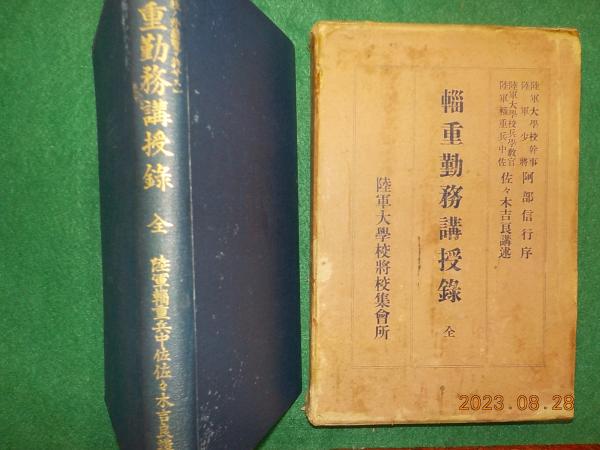 陸軍大學校幹事
陸軍少將 阿部信行序
陸軍大學校兵學教官
陸軍輜重兵中佐 佐々木吉良講述
輜重勤務講授錄 全
陸軍大學校將校集會所
重勤務講授錄 全
陸軍輜重兵中佐佐々木吉良
2023.08.28